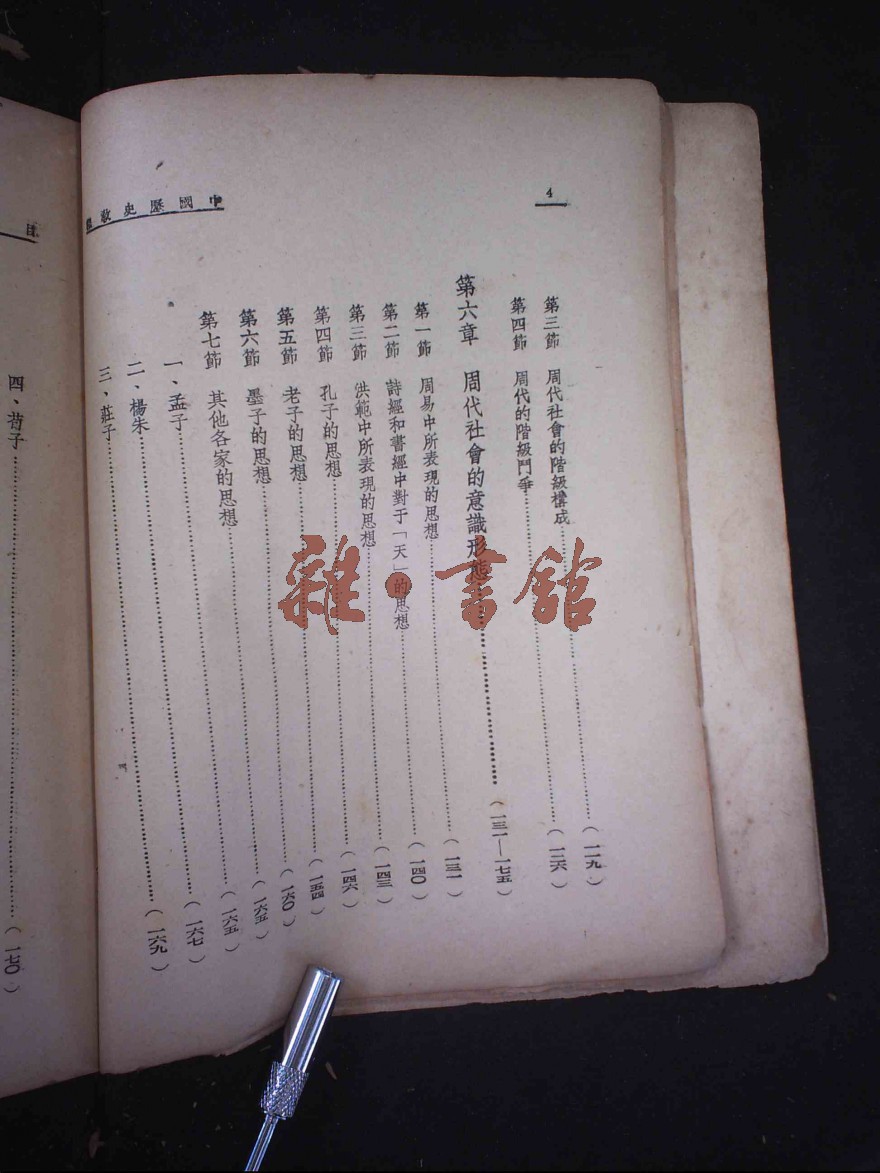 4
中國歷史教
第三節 周代社會的階級構成……（一一九）
第四節 周代的階級鬥爭……（一二六）
第六章 周代社會的意識形態……（一三一—一七五）
第一節 周易中所表現的思想……（一三一）
第二節 詩經和書經中對于「天」的思想……（一四〇）
第三節 洪範中所表現的思想……（一四三）
第四節 孔子的思想……（一四六）
第五節 老子的思想……（一五四）
第六節 墨子的思想……（一六〇）
第七節 其他各家的思想……（一六五）
一、孟子……（一六五）
二、楊朱……（一六七）
三、莊子……（一六九）
目
四、荀子……（一七〇）
雜·書館